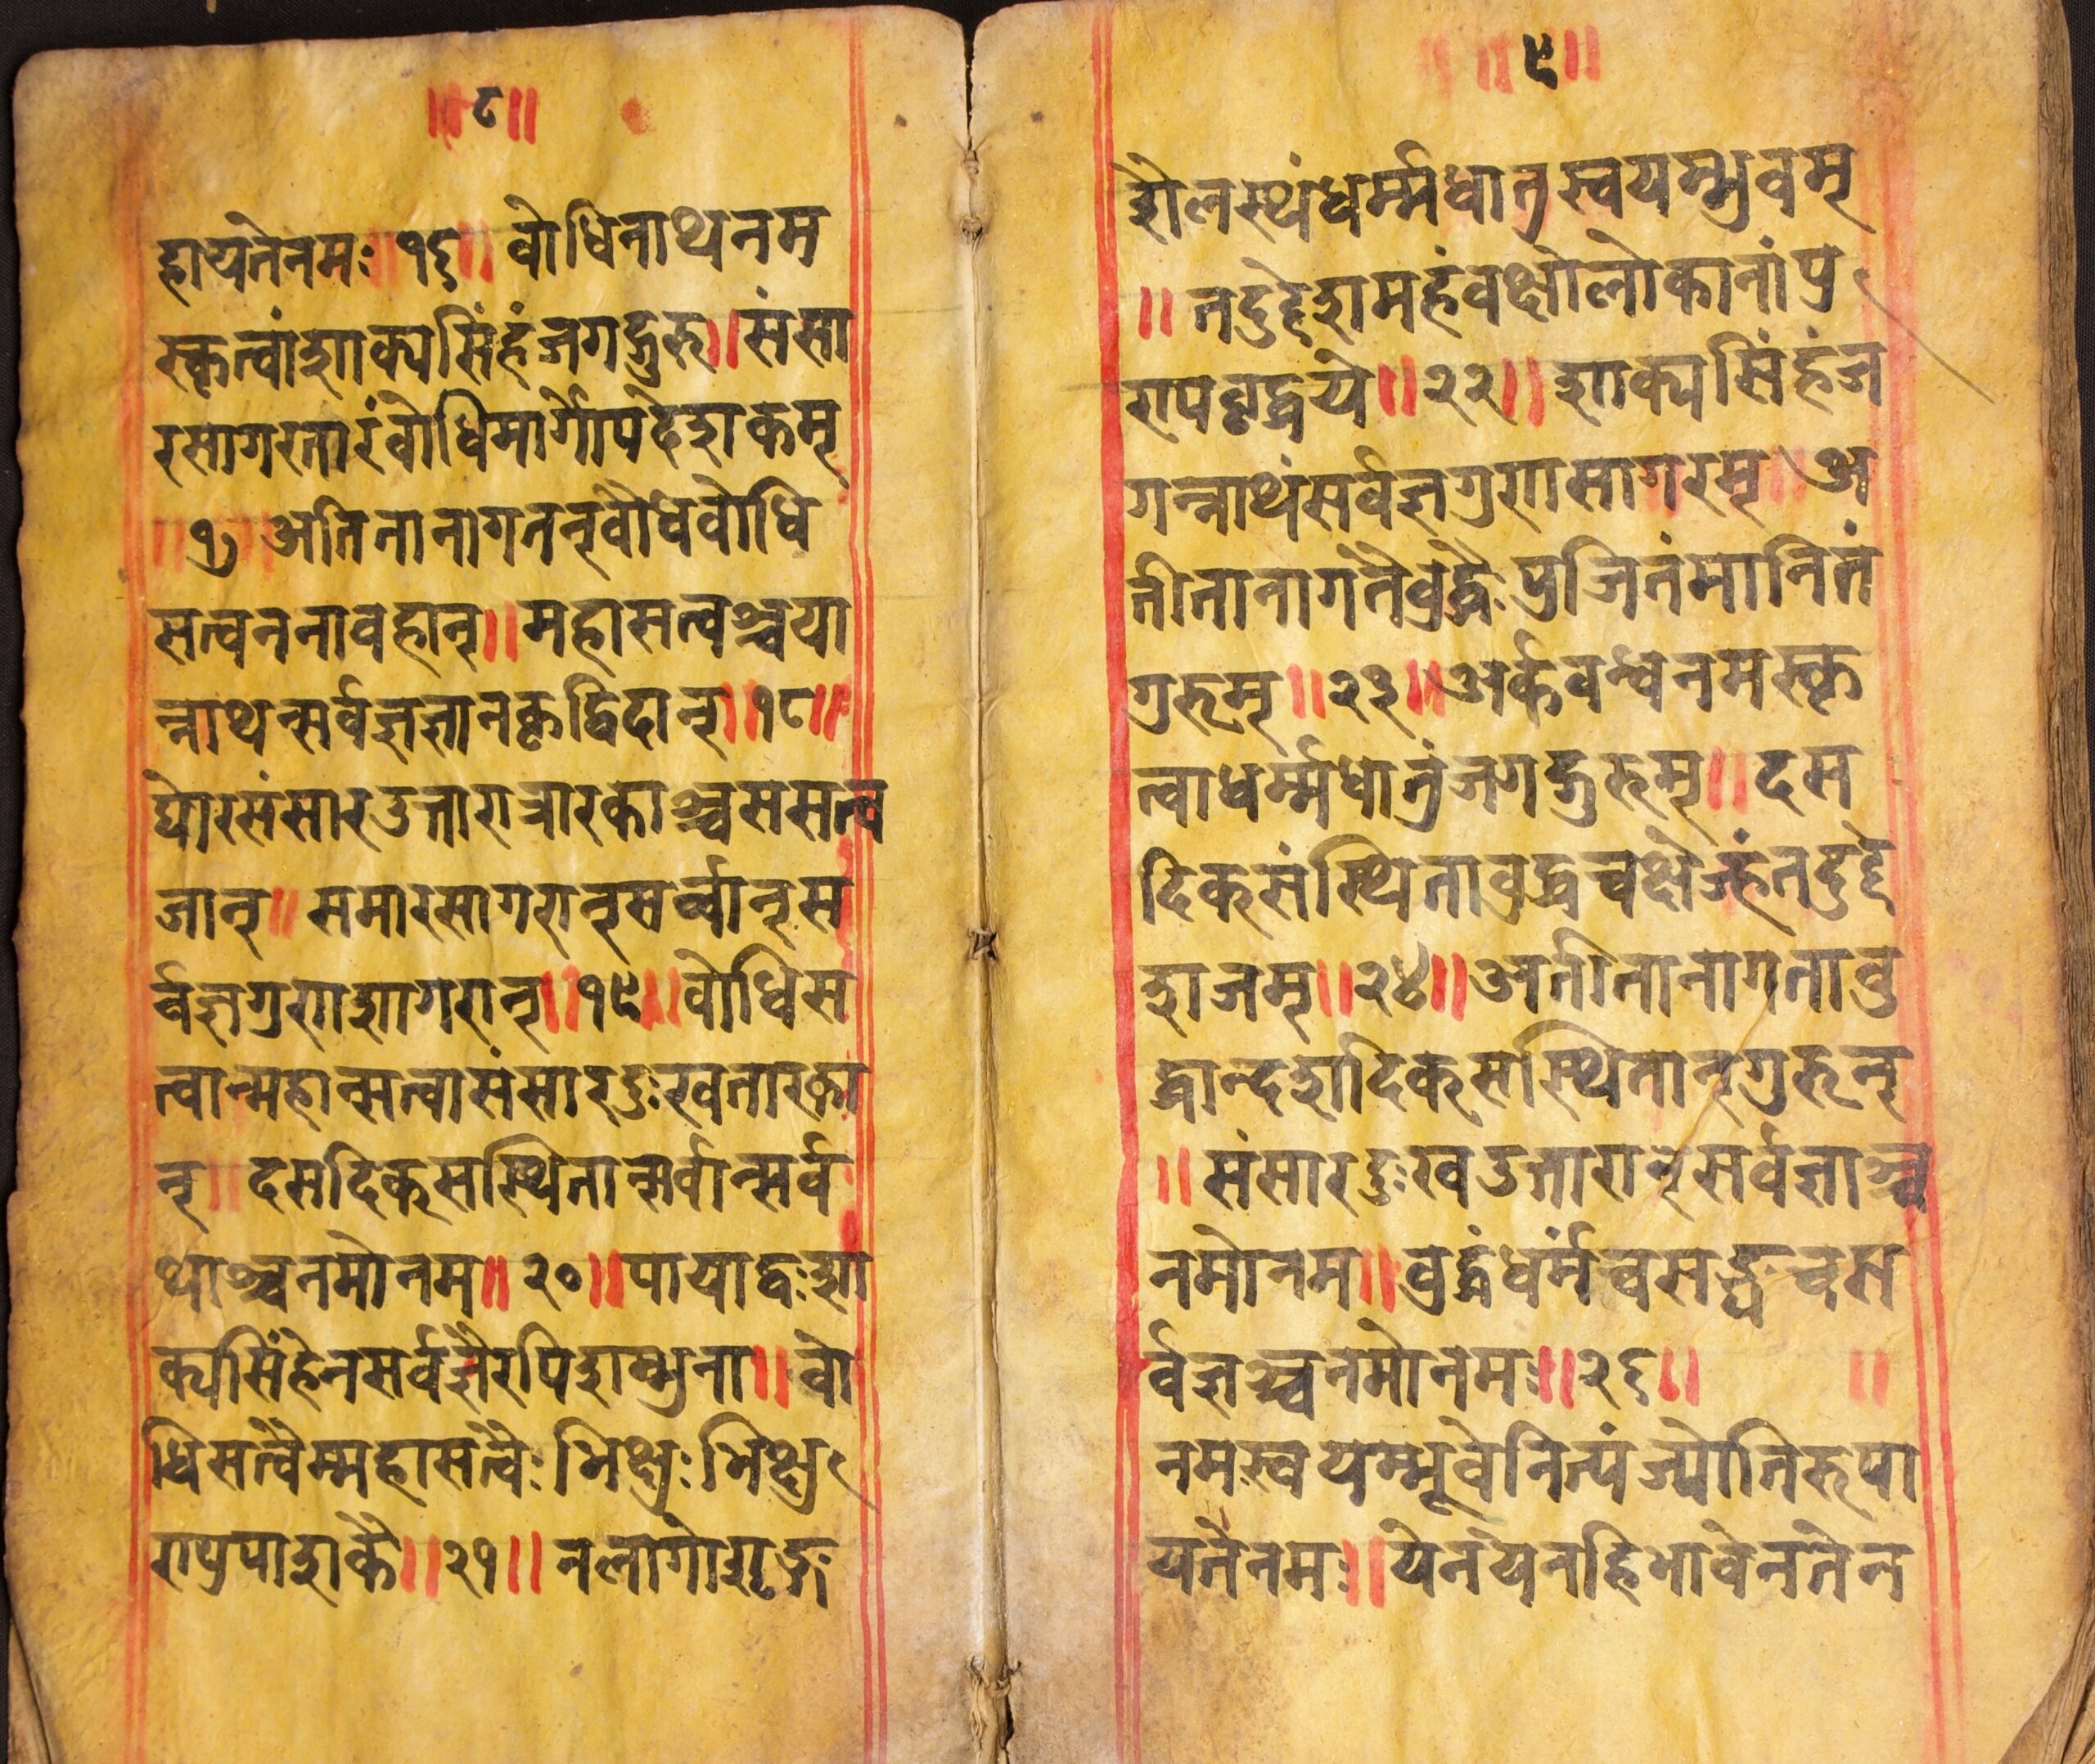 ॥ ८ ॥
ह्रायतेनमः ॥ १६ ॥ वोधिनाथनम
स्कृत्वांशाक्यसिंहंजगद्गुरु ॥ संसा
रसागरतारंवोधिमार्गोपदेशकम्
॥ १७ ॥ अतितानागतन्वौधेवोधि
सत्वनतावहान् ॥ महासत्वश्चया
न्नाथन्सर्वज्ञज्ञानकृद्विदान् ॥ १८ ॥
घोरसंसारउत्तारात्रारकाश्चससत्व
जान् ॥ समारसागरान्सर्व्वान्स
र्वज्ञगुणशागरान् ॥ १९ ॥ वोधिस
त्वान्महान्सत्वासंसारदुःखतारका
न् ॥ दसदिक्सस्थितान्सर्वान्सर्व
थाश्चनमोनम् ॥ २० ॥ पायाद्वःशा
क्यसिंहेनसर्वज्ञैरपिशम्भुना ॥ वो
धिसत्वैम्महासत्वैः भिक्षुः भिक्षु
राप्रपाशकै ॥ २१ ॥ नलागोशृङ्ग
॥ ९ ॥
शैलस्थंधर्म्मधातुस्वयम्भुवम्
॥ तदुद्देशमहंवक्षोलोकानांप्र
रापवृद्धये ॥ २२ ॥ शाक्यसिंहंज
गन्नाथंसर्वज्ञगुणसागरम् ॥ अ
तीतानागतैवुद्धैः पुजितंमानितं
गुरूम् ॥ २३ ॥ अर्कवन्धनमस्कृ
त्वाधर्म्मधातुंजगद्गुरूम् ॥ दस
दिक्संस्थितावुद्धवक्षेऽहंतदुर्द्दे
शजम् ॥ २४ ॥ अतीतानागतावु
द्धान्दशदिक्सस्थितान्गुरून्
॥ संसारदुःखउत्तारान्सर्वज्ञाश्च
नमोनम ॥ वुद्धंधर्मंचसङ्घंचस
र्वज्ञश्चनमोनमः ॥ २६ ॥ ॥
नमस्वयम्भूवेनित्यंज्योतिरूपा
यतेनमः ॥ येनयेनहिभावेनतेन